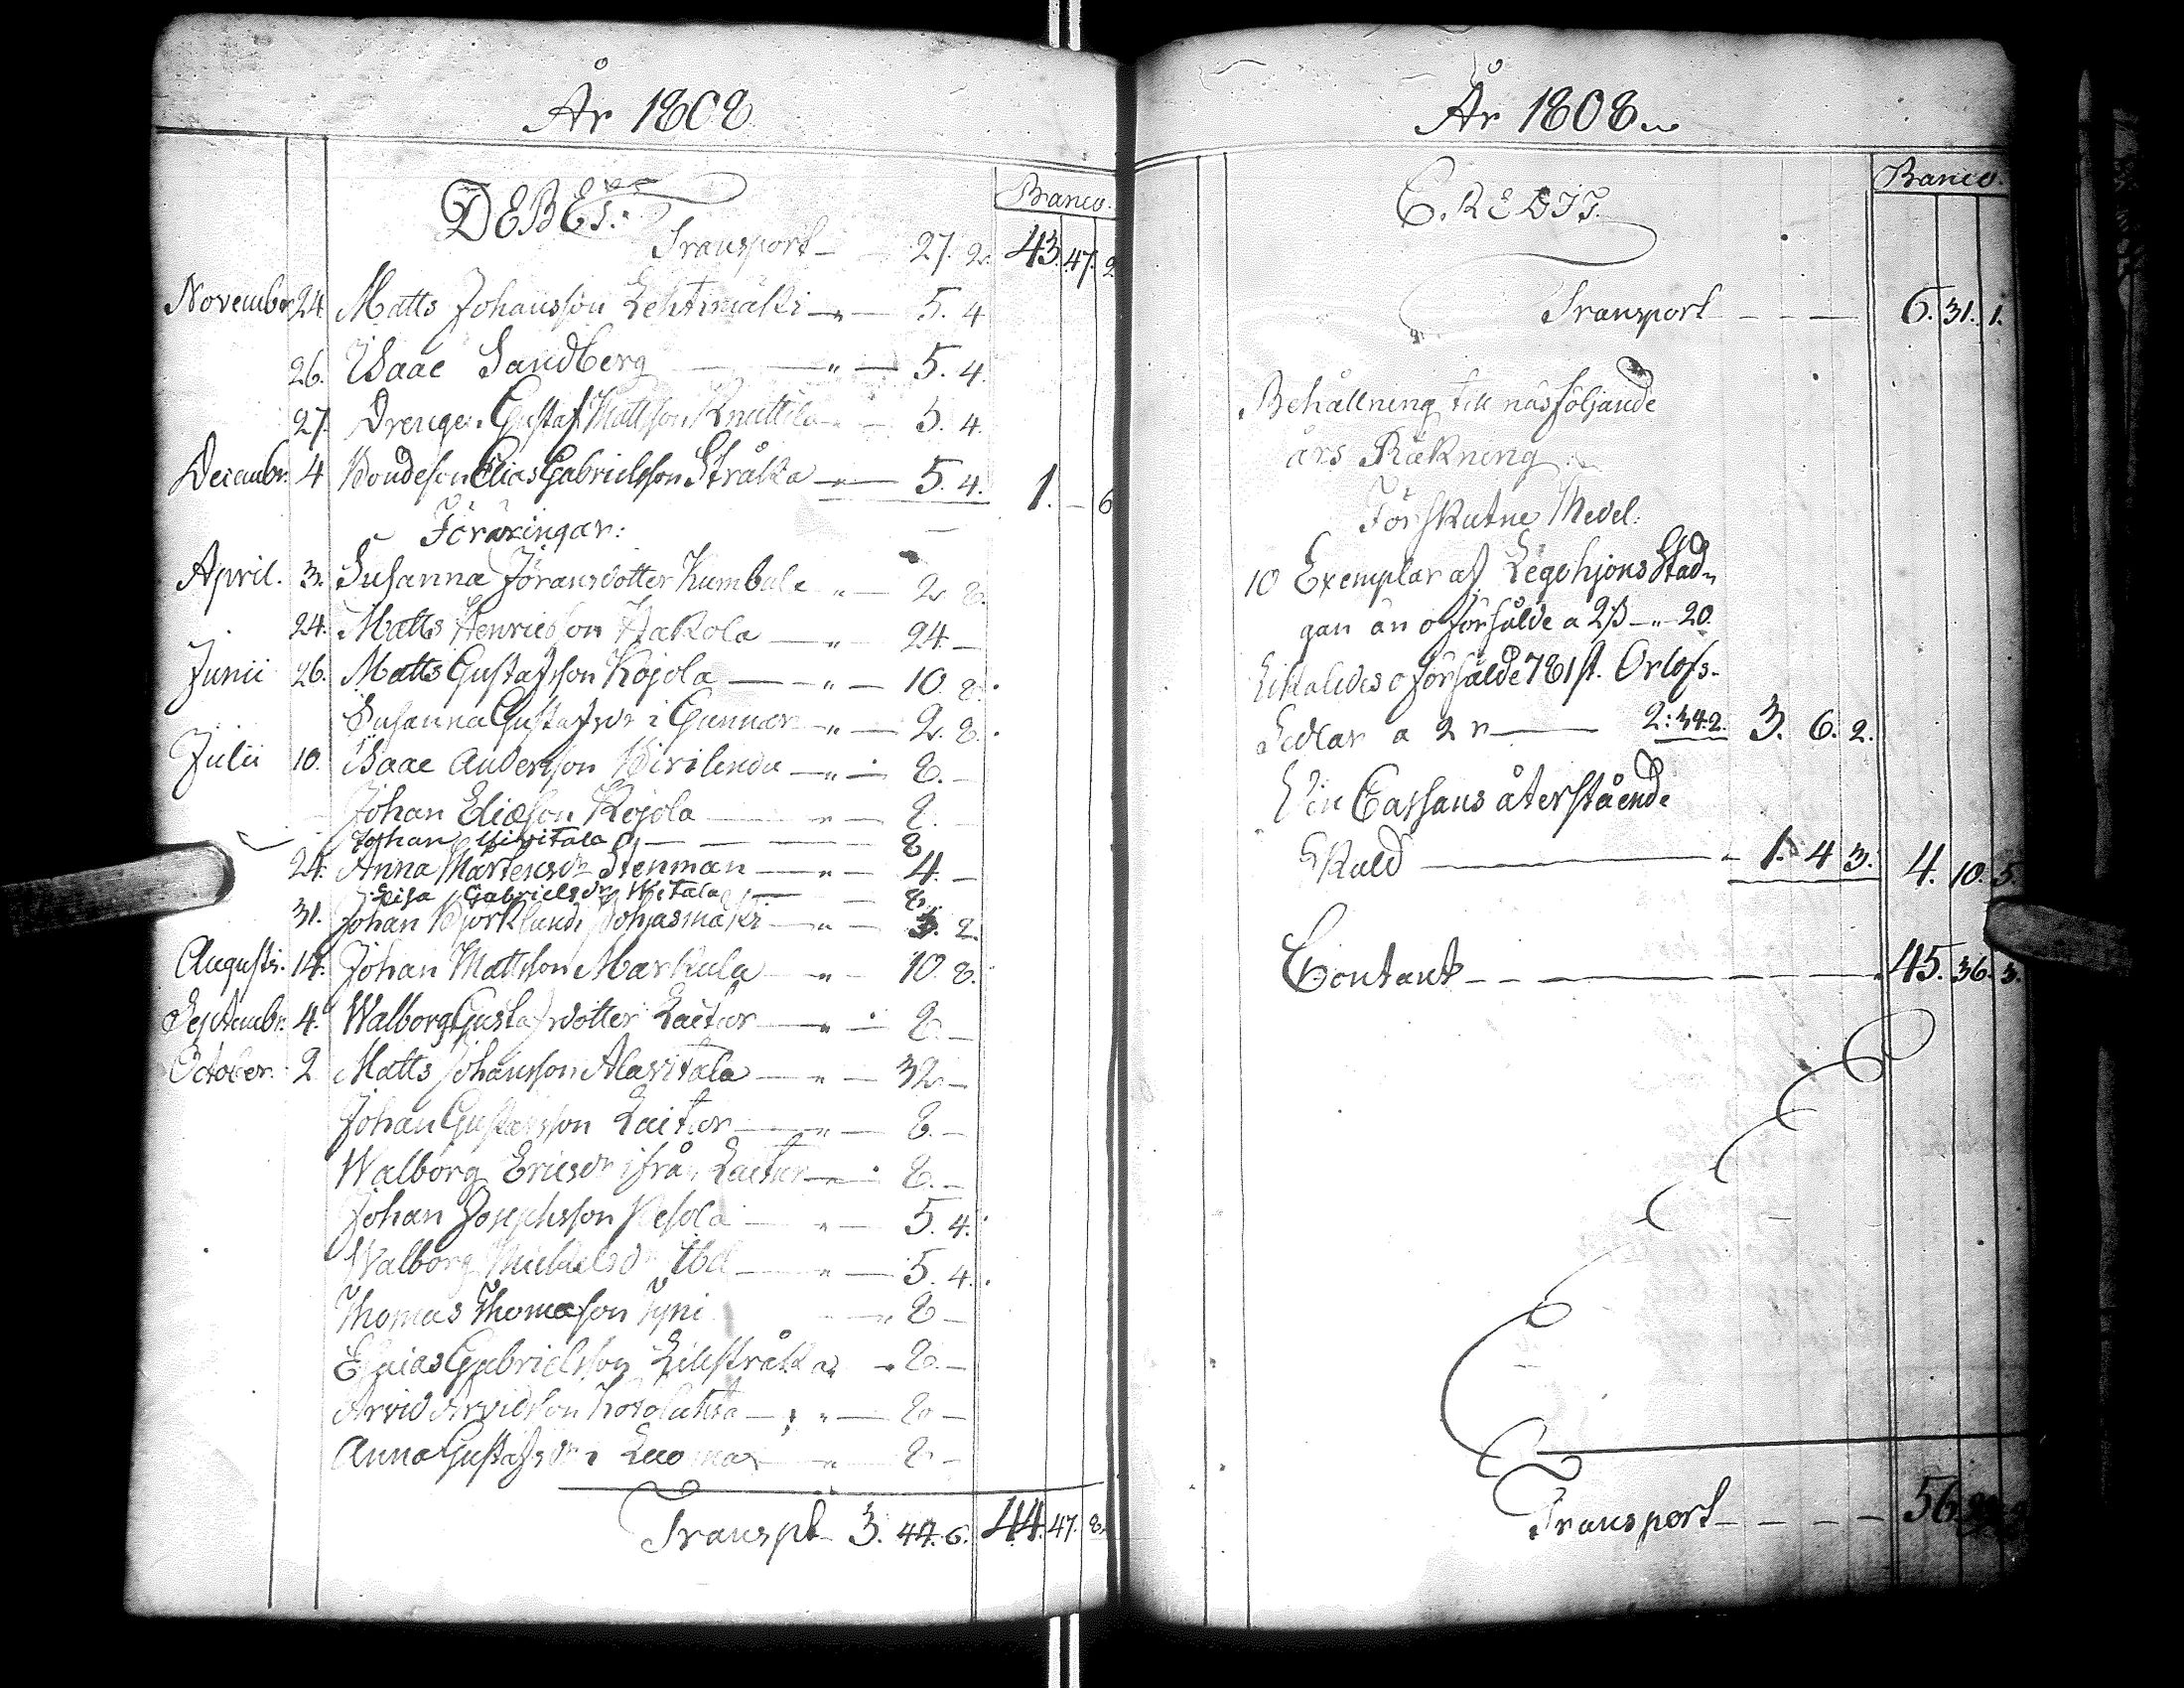 År 1808
DEBET.
Banco.
Transport — 27. 2. 43. 47. 2
November 24. Matts Johansson Lehtimäki — " — 5. 4
26. Isaac Sandberg — " — 5. 4.
27. Drengen Gustaf Mattsson Knuttila — 5. 4.
Decembr. 4 Bondeson Elias Gabrielsson Stråka — " — 5. 4. 1. — 6
Föräringar:
April. 3. Susanna Jöransdotter Kumbala " — 2 8.
24. Matts Henricsson Hakola — " 24. —
Junii 26. Matts Gustafsson Kojola — " — 10. 8.
Susanna Gustafsdr i Gunnar — " — 2. 8.
Julii 10. Isaac Andersson — " — 8. —
Johan Eliasson Kojola — " — 8. —
Johan — — — 8
24. Anna Mårtensdr Stenman — " — 4. —
Lisa Gabrielsdr — — 8.
31. Johan Björklund Pohjasmäki — " — 3. 2.
Augusti. 14. Johan Mattsson Markula — " — 10. 8.
Septembr. 4. Walborg Gustafsdotter Laitar — " 8. —
October. 2 Matts Johansson Alavitala — " — 32. —
Johan Gustafsson Laitar — " — 8. —
Walborg Ericsdr ifrån Laitar — " 8. —
Johan Josephsson Pesola — " — 5. 4.
Walborg Michelsdr ibd — " — 5. 4.
Thomas Thomasson — " 8 —
Esaias Gabrielsson Lillstråka " 8. —
Arvid Arvidsson — " — 8 —
Anna Gustafsdr i Luomas — " 8 —
Transpt 3. 44. 6. 44. 47. 8.
År 1808
CREDIT.
Banco.
Transport — — — 6. 31. 1.
Behållning till näsföljande
års Räkning
Förskutne Medel:
10 Exemplar af LegohjonsStad-
gan än oförsålde a 2 ß — " 20.
Likaledes oförsålde 781 st. Orlofs-
Sedlar a 2 r — 2: 34. 2. 3. 6. 2.
Vin Cassans återstående
Skuld — 1. 4 3. 4. 10. 5.
Contant — — — 45. 36. 3.
Transport — — — — 56.